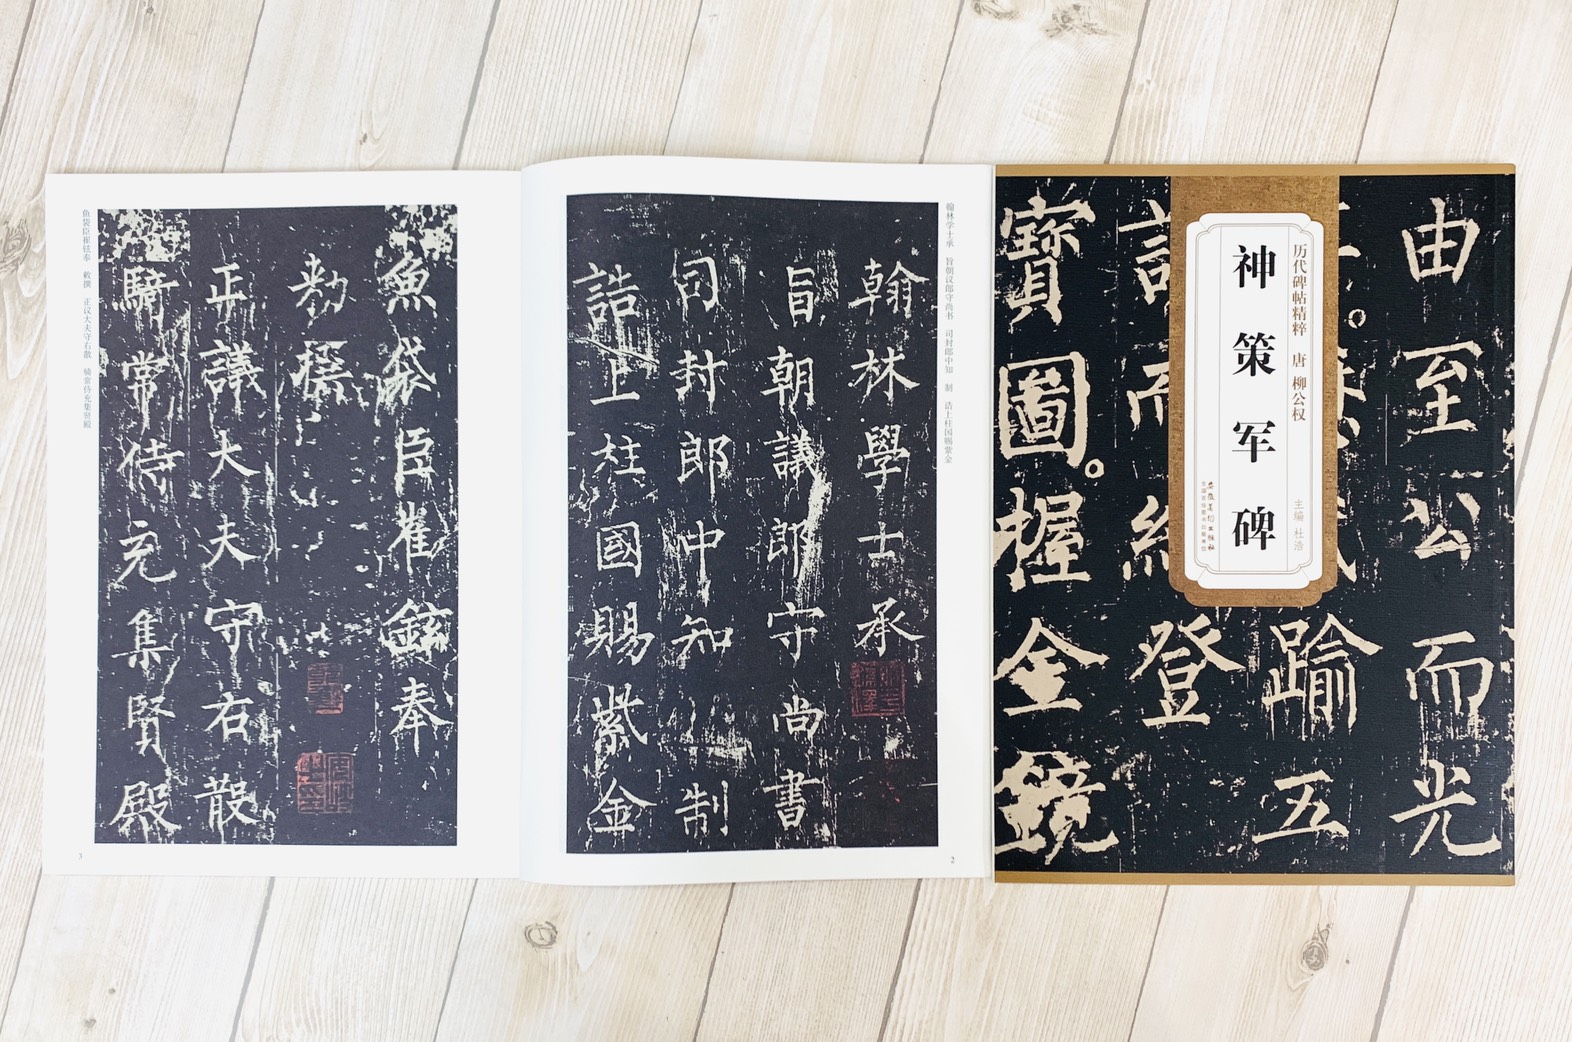 由至公而光
踰五
登
寶圖。握金鏡
历代碑帖精粹 唐 柳公权
主编 杜浩
神策军碑
安徽美术出版社
全国百佳图书出版单位
翰林学士承 旨朝议郎守尚书 司封郎中知 制 诰上柱国赐紫金
翰林學士承
旨朝議郎守尚書
司封郎中知制
誥上柱國賜紫金
2
魚袋臣崔鉉奉
敕撰
正議大夫守右散
騎常侍充集賢殿
鱼袋臣崔铉奉 敕撰 正议大夫守右散 骑常侍充集贤殿
3